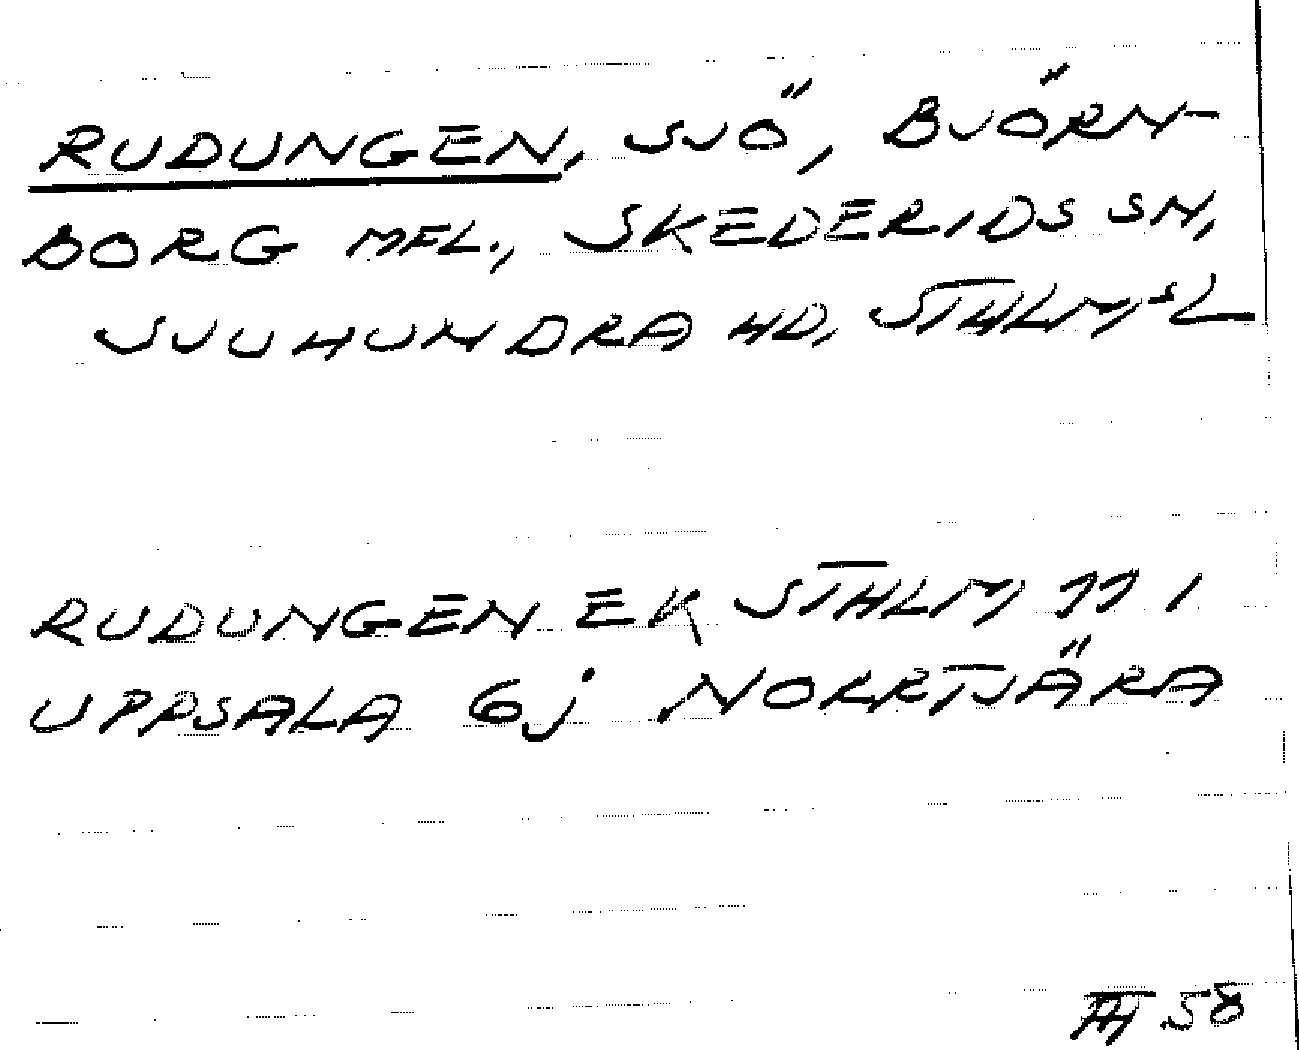 RUDUNGEN, SJÖ, BJÖRN-
BORG MFL., SKEDERIDS SN,
SJUHUNDRA HD, STHLMS L
RUDUNGEN EK STHLM 11 I
UPPSALA 6j NORRTJÄRA
58